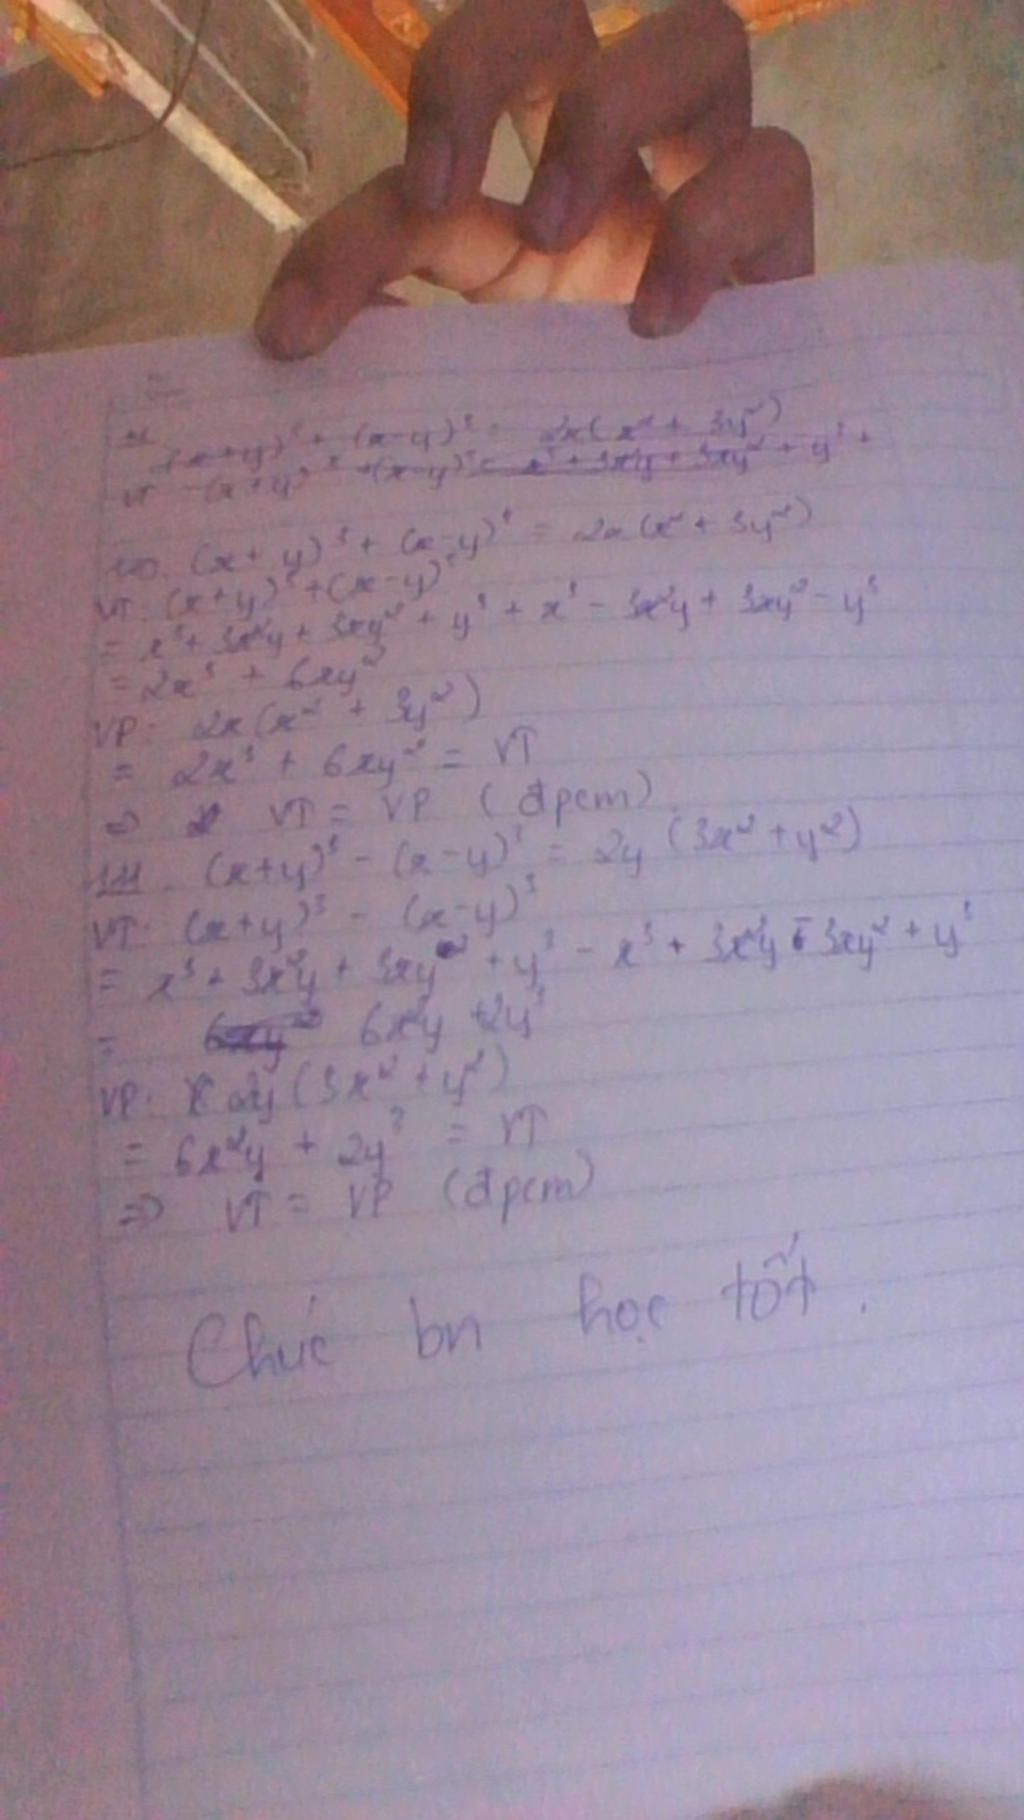 (x+y)³ + (x-y)³ = 2x(x² + 3y²)
VT = (x+y)³ + (x-y)³ = x³ + 3x²y + 3xy² + y³ +
10. (x+y)³ + (x-y)³ = 2x(x² + 3y²)
VT: (x+y)³ + (x-y)³
= x³ + 3x²y + 3xy² + y³ + x³ - 3x²y + 3xy² - y³
= 2x³ + 6xy²
VP: 2x(x² + 3y²)
= 2x³ + 6xy² = VT
=> VT = VP (đpcm)
11. (x+y)³ - (x-y)³ = 2y(3x² + y²)
VT: (x+y)³ - (x-y)³
= x³ + 3x²y + 3xy² + y³ - x³ + 3x²y - 3xy² + y³
= 6x²y + 2y³
VP: 2y(3x² + y²)
= 6x²y + 2y³ = VT
=> VT = VP (đpcm)
Chúc bn học tốt.